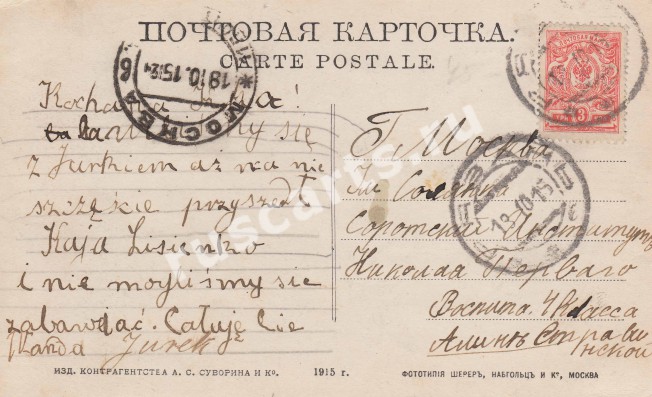 ПОЧТОВАЯ КАРТОЧКА.
CARTE POSTALE.
МОСКВА
18.10.15
6
3
18.10.15
Kochana
się
z Jurkiem aż na nie
szczęście przyszedł
Kaja Lisienko
i nie mogliśmy sie
zabawiać. Całuję Cie
Wanda Jurek
Г Москва
Ул Солянка
Сиротский Институтъ
Николая Перваго
Воспит. 4 Класса
Алинѣ
нской
ruscarts.ru
ИЗД. КОНТРАГЕНТСТВА А. С. СУВОРИНА И Кº.
1915 г.
ФОТОТИПІЯ ШЕРЕРЪ, НАБГОЛЬЦЪ И Кº, МОСКВА